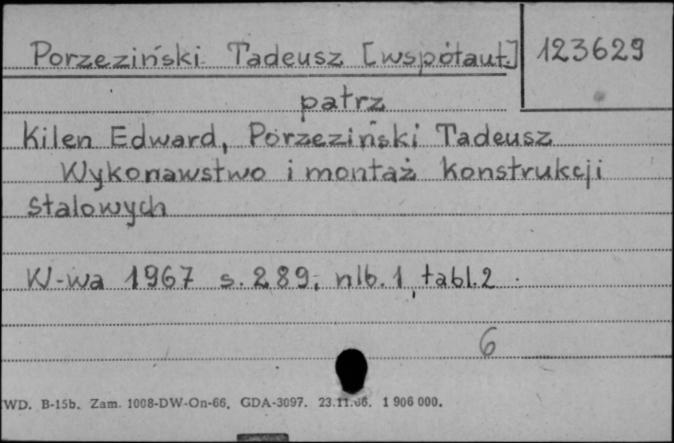 Porzeziński Tadeusz [współaut.] 123629
patrz
Kilen Edward, Porzeziński Tadeusz
Wykonawstwo i montaż konstrukcji
stalowych
W-wa 1967 s. 289, nlb. 1, tabl. 2
6
WD. B-15b. Zam. 1008-DW-On-66. GDA-3097. 23.11.66. 1 906 000.